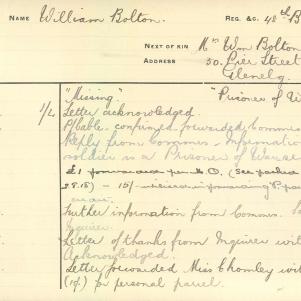 NAME William Bolton. REG. &C. 48th B
NEXT OF KIN Mrs Wm Bolton
ADDRESS 50. Pier Street
Glenelg.
"Missing" "Prisoner of W
1/L Letter acknowledged.
P/Cable. confirmed forwarded Comms
Reply from Comms - Information
soldier is a Prisoner of War
£1 forwarded O. (See
28.18) - 15/-
Further information from Comms. Se
Inquirer.
Letter of thanks from Inquirer wit
Acknowledged.
Letter forwarded Miss Chomley wit
for personal parcel.